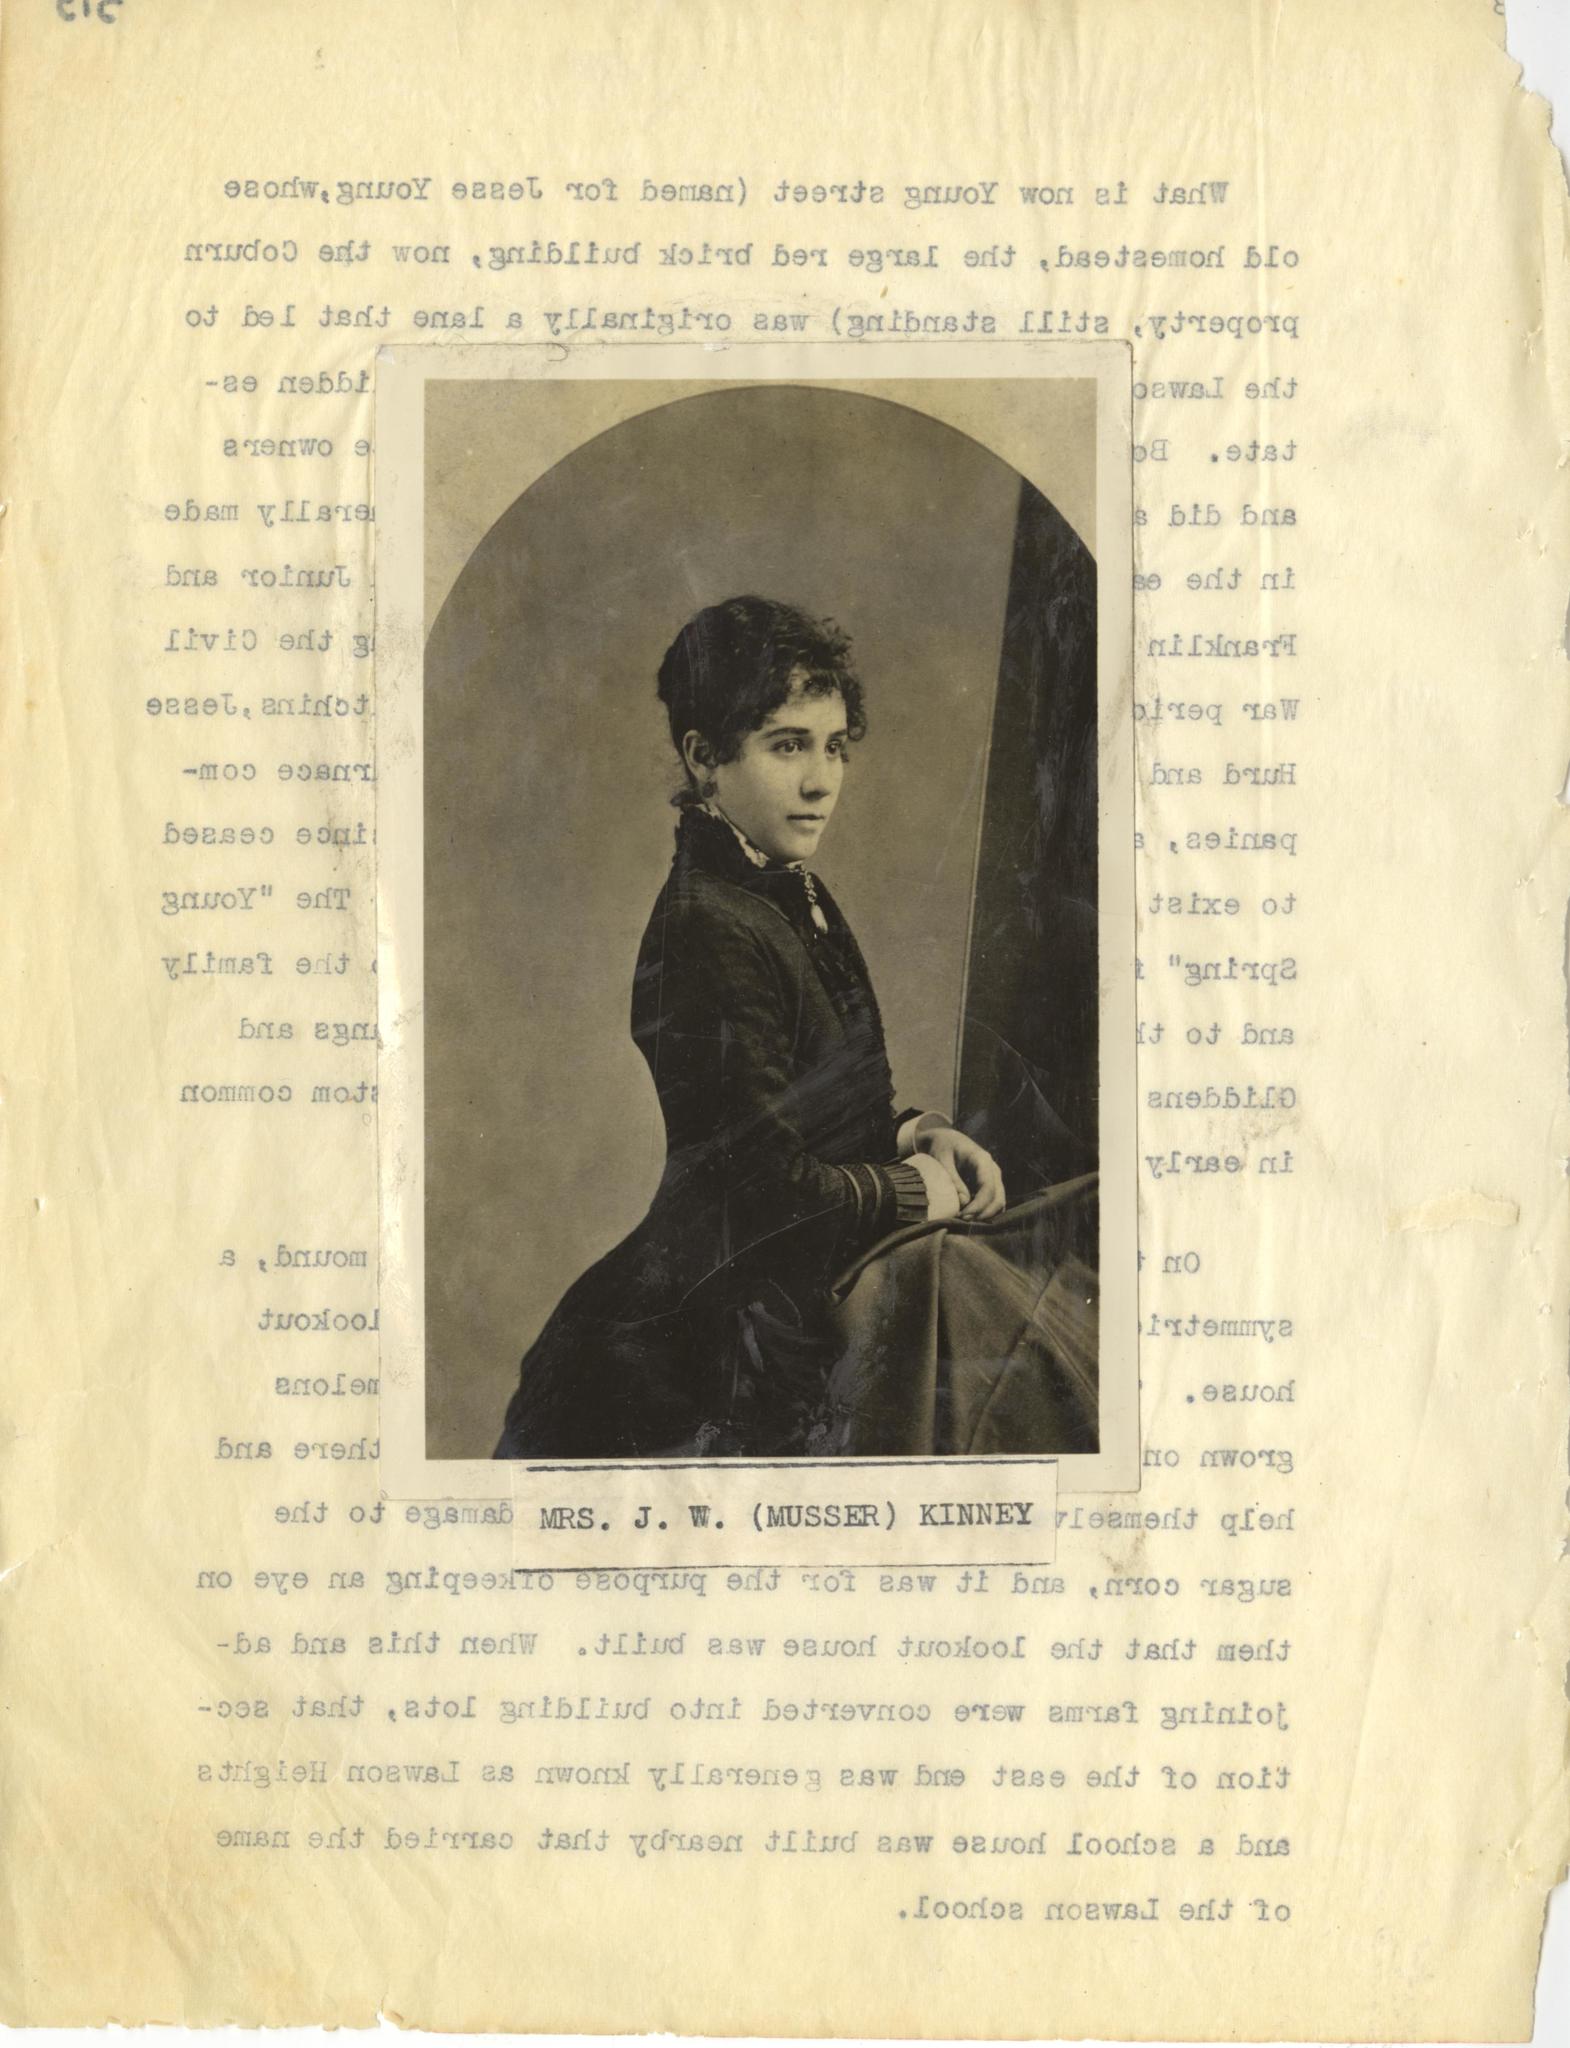 What is now Young street (named for Jesse Young,whose
old homestead, the large red brick building, now the Coburn
property, still standing) was originally a lane that led to
the es-
tate. owners
and did made
in the Junior and
Franklin the Civil
War Jesse
Hurd and com-
panies, ceased
to exist The "Young
Spring" the family
and to and
Gliddens common
in early
On mound, a
lookout
house.
grown there and
help damage to the
MRS. J. W. (MUSSER) KINNEY
sugar corn, and it was for the purpose ofkeeping an eye on
them that the lookout house was built. When this and ad-
joining farms were converted into building lots, that sec-
tion of the east end was generally known as Lawson Heights
and a school house was built nearby that carried the name
of the Lawson school.